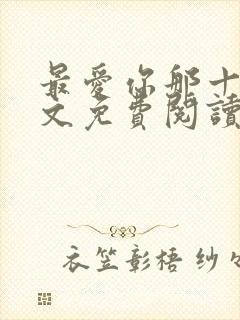 最愛你那十
文免費閱讀
衣笠彰梧 纱